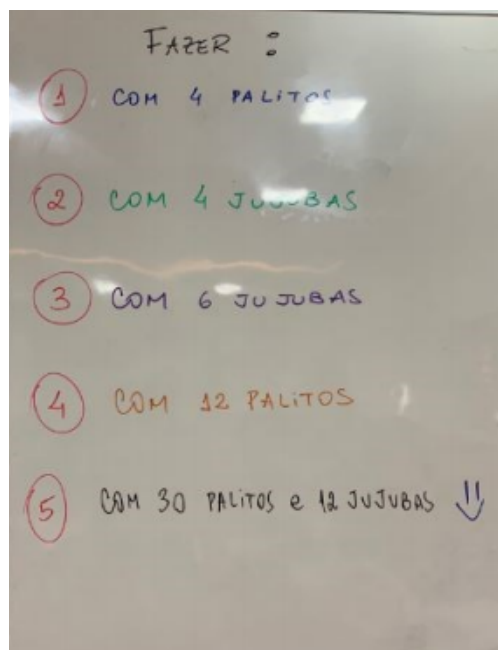 FAZER :
1 COM 4 PALITOS
2 COM 4 JUJUBAS
3 COM 6 JUJUBAS
4 COM 12 PALITOS
5 COM 30 PALITOS e 12 JUJUBAS